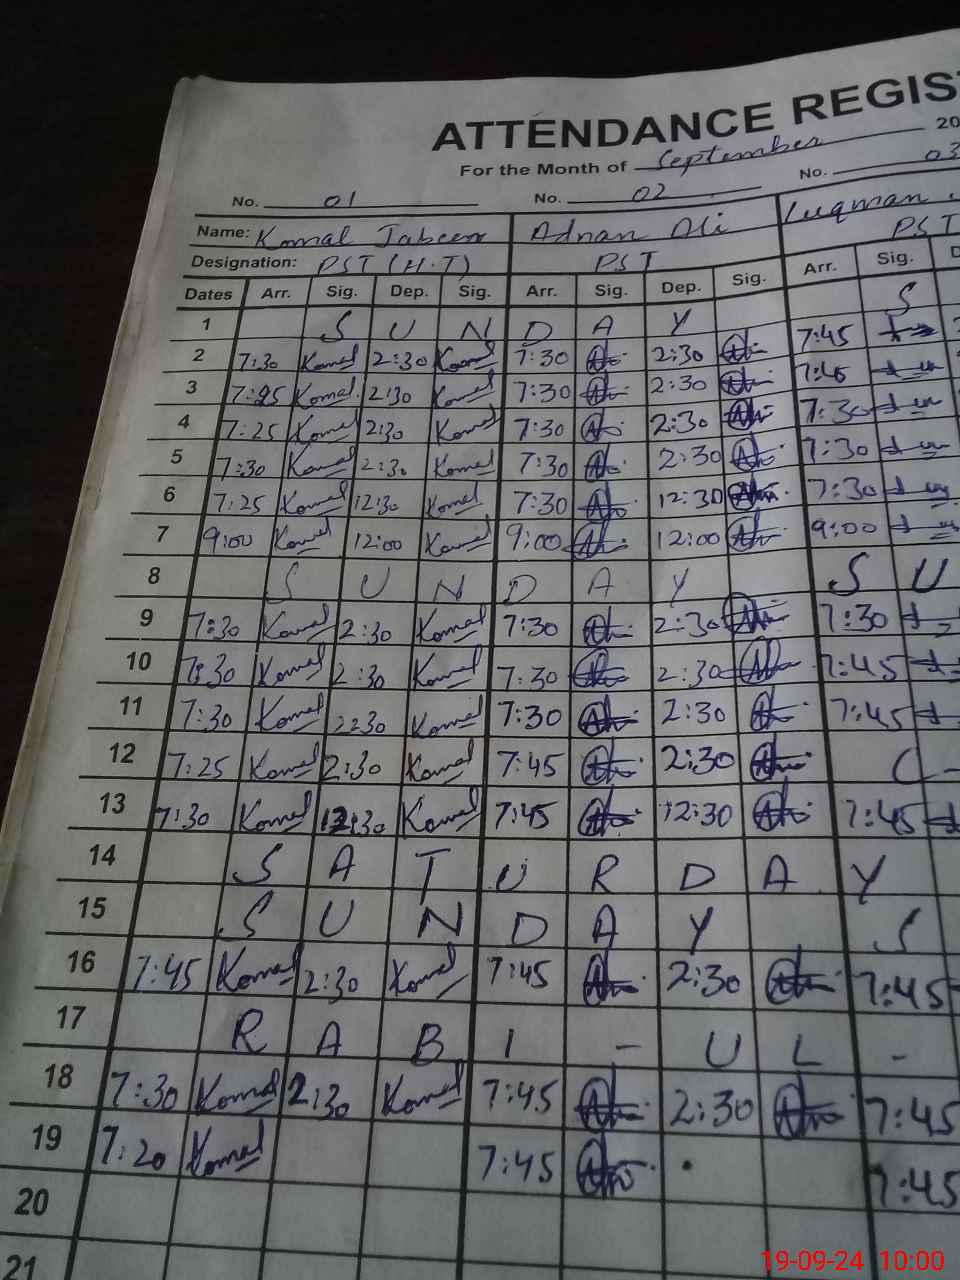 ATTENDANCE REGIS
For the Month of September 20
No. 01 No. 02 No. 03
Name: Komal Jabeen Adnan Ali Luqman
Designation: PST (H.T) PST PST
Dates Arr. Sig. Dep. Sig. Arr. Sig. Dep. Sig. Arr. Sig. D
1 S U N D A Y S
2 7:30 Komal 2:30 Komal 7:30 2:30 7:45
3 7:25 Komal 2:30 Komal 7:30 2:30 7:45
4 7:25 Komal 2:30 Komal 7:30 2:30 7:30
5 7:30 Komal 2:30 Komal 7:30 2:30 7:30
6 7:25 Komal 12:30 Komal 7:30 12:30 7:30
7 9:00 Komal 12:00 Komal 9:00 12:00 9:00
8 S U N D A Y S U
9 7:30 Komal 2:30 Komal 7:30 2:30 7:30
10 7:30 Komal 2:30 Komal 7:30 2:30 7:45
11 7:30 Komal 2:30 Komal 7:30 2:30 7:45
12 7:25 Komal 2:30 Komal 7:45 2:30 C -
13 7:30 Komal 12:30 Komal 7:45 12:30 7:45
14 S A T U R D A Y
15 S U N D A Y S
16 7:45 Komal 2:30 Komal 7:45 2:30 7:45
17 R A B I - U L -
18 7:30 Komal 2:30 Komal 7:45 2:30 7:45
19 7:20 Komal 7:45 7:45
20
21
19-09-24 10:00